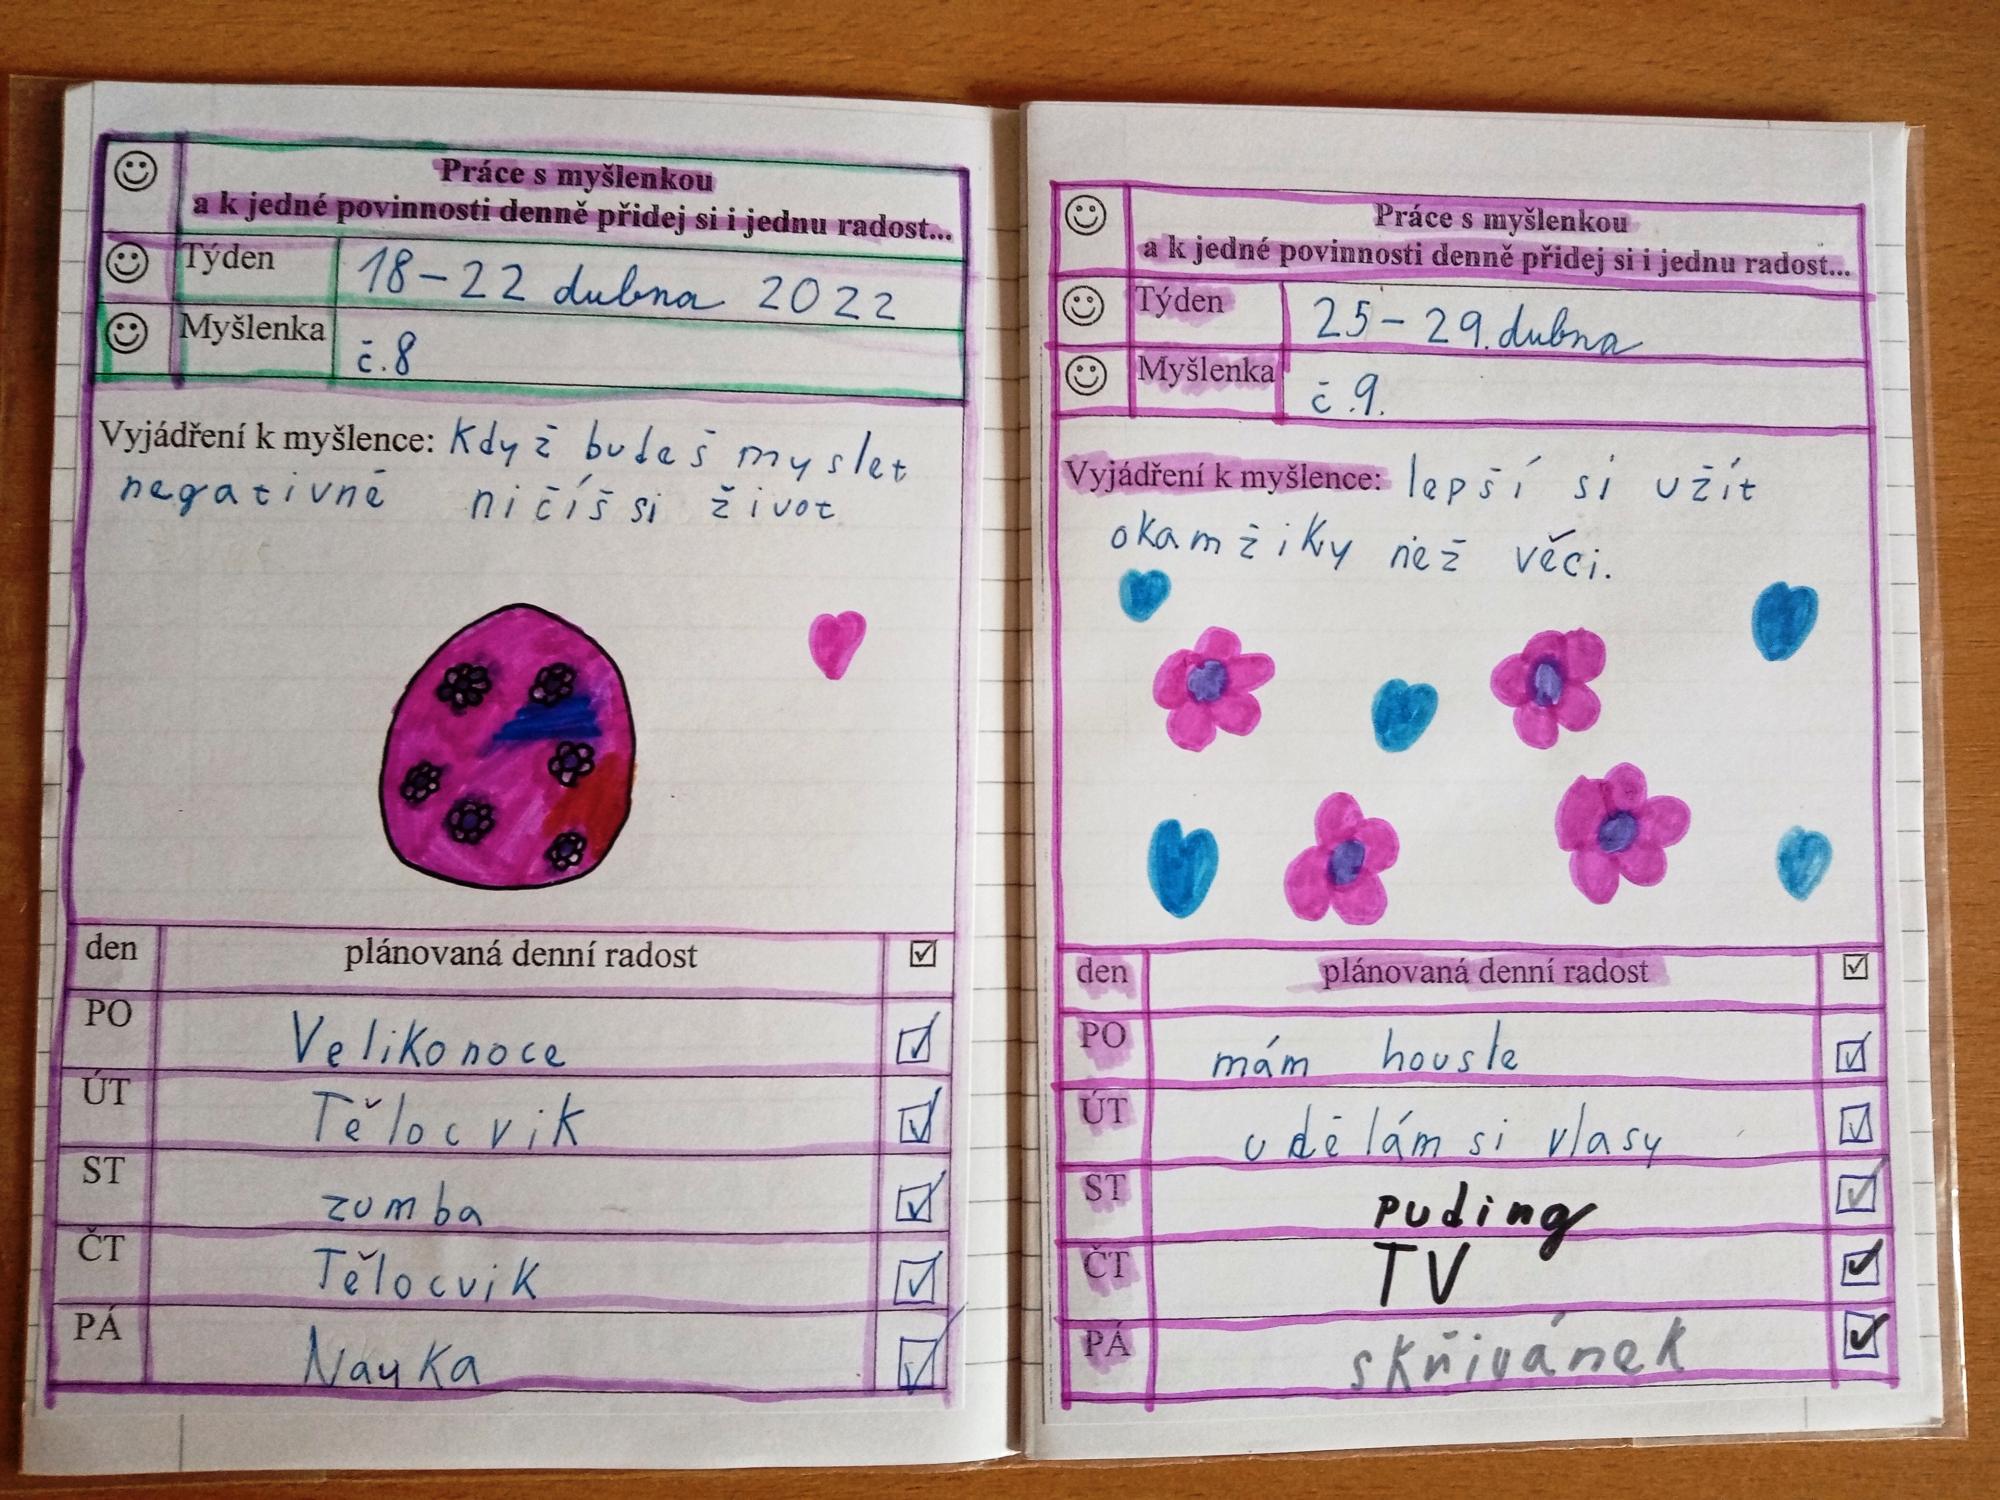 Práce s myšlenkou
a k jedné povinnosti denně přidej si i jednu radost...
Týden 18-22 dubna 2022
Myšlenka č.8
Vyjádření k myšlence: Když budeš myslet
negativně ničíš si život
den plánovaná denní radost
PO Velikonoce
ÚT Tělocvik
ST zumba
ČT Tělocvik
PÁ Nauka
Práce s myšlenkou
a k jedné povinnosti denně přidej si i jednu radost...
Týden 25-29. dubna
Myšlenka č.9.
Vyjádření k myšlence: lepší si užít
okamžiky než věci.
den plánovaná denní radost
PO mám housle
ÚT udělám si vlasy
ST puding
ČT TV
PÁ skřivánek